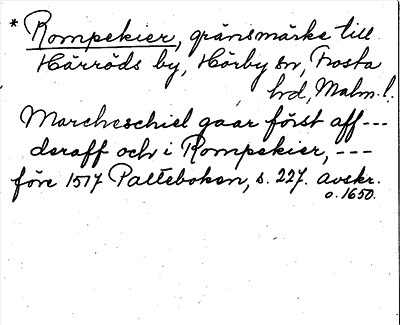 * Rompekier, gränsmärke till
Härröds by, Hörby sn, Frosta
hd, Malm. l.
Marcheschiel gaar först aff ---
deraff och i Rompekier, ---
före 1517 Palteboken, s. 227. Avskr.
o. 1650.